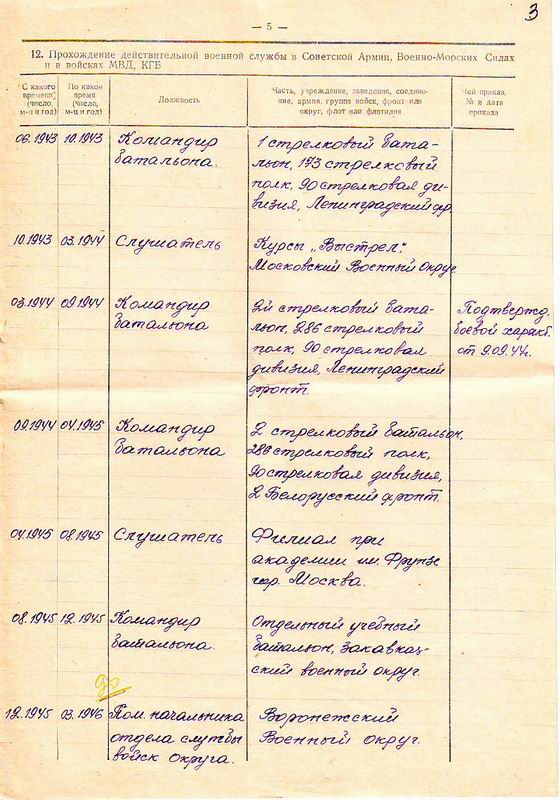 3
— 5 —
12. Прохождение действительной военной службы в Советской Армии, Военно-Морских Силах
и в войсках МВД, КГБ
С какого
времени
(число,
м-ц и год)
По какое
время
(число,
м-ц и год)
Должность
Часть, учреждение, заведение, соедине-
ние, армия, группа войск, фронт или
округ, флот или флотилия
Чей приказ,
№ и дата
приказа
06.1943 10.1943 Командир 1 стрелковый бата-
батальона. льон, 173 стрелковый
полк, 90 стрелковая ди-
визия, Ленинградский фр.
10.1943 03.1944 Слушатель Курсы „Выстрел",
Московский Военный Округ
03.1944 09.1944 Командир 2й стрелковый бата- Подтвержд.
батальона льон, 286 стрелковый боевой характ.
полк, 90 стрелковая от 9.09.44г.
дивизия, Ленинградский
фронт.
09.1944 04.1945 Командир 2 стрелковый батальон,
батальона 286 стрелковый полк,
90 стрелковая дивизия,
2 Белорусский фронт.
04.1945 08.1945 Слушатель Филиал при
академии им. Фрунзе
гор. Москва.
08.1945 12.1945 Командир Отдельный учебный
батальона. батальон, Закавказ-
ский военный округ.
12.1945 03.1946 Пом. начальника Воронежский
отдела службы Военный округ.
войск округа.